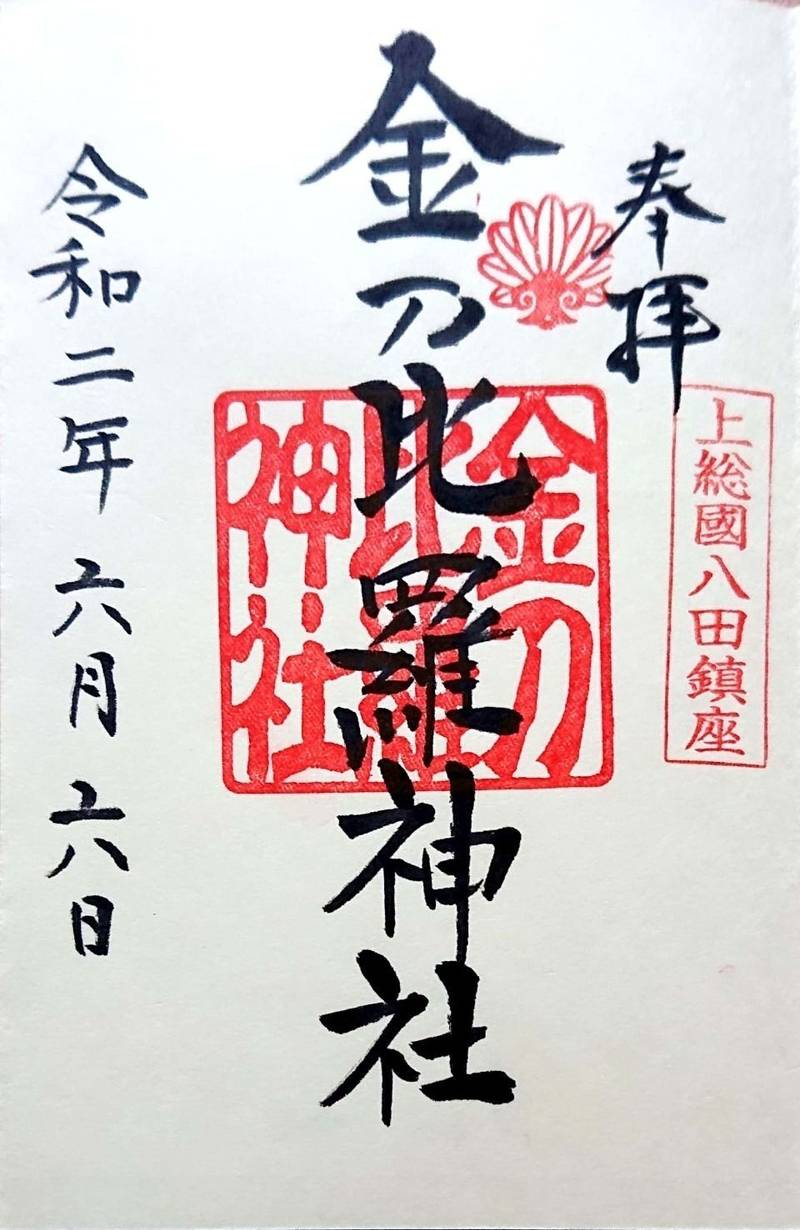 奉拝
上総國八田鎮座
金刀比羅神社
金刀
比羅
神社
令和二年六月六日